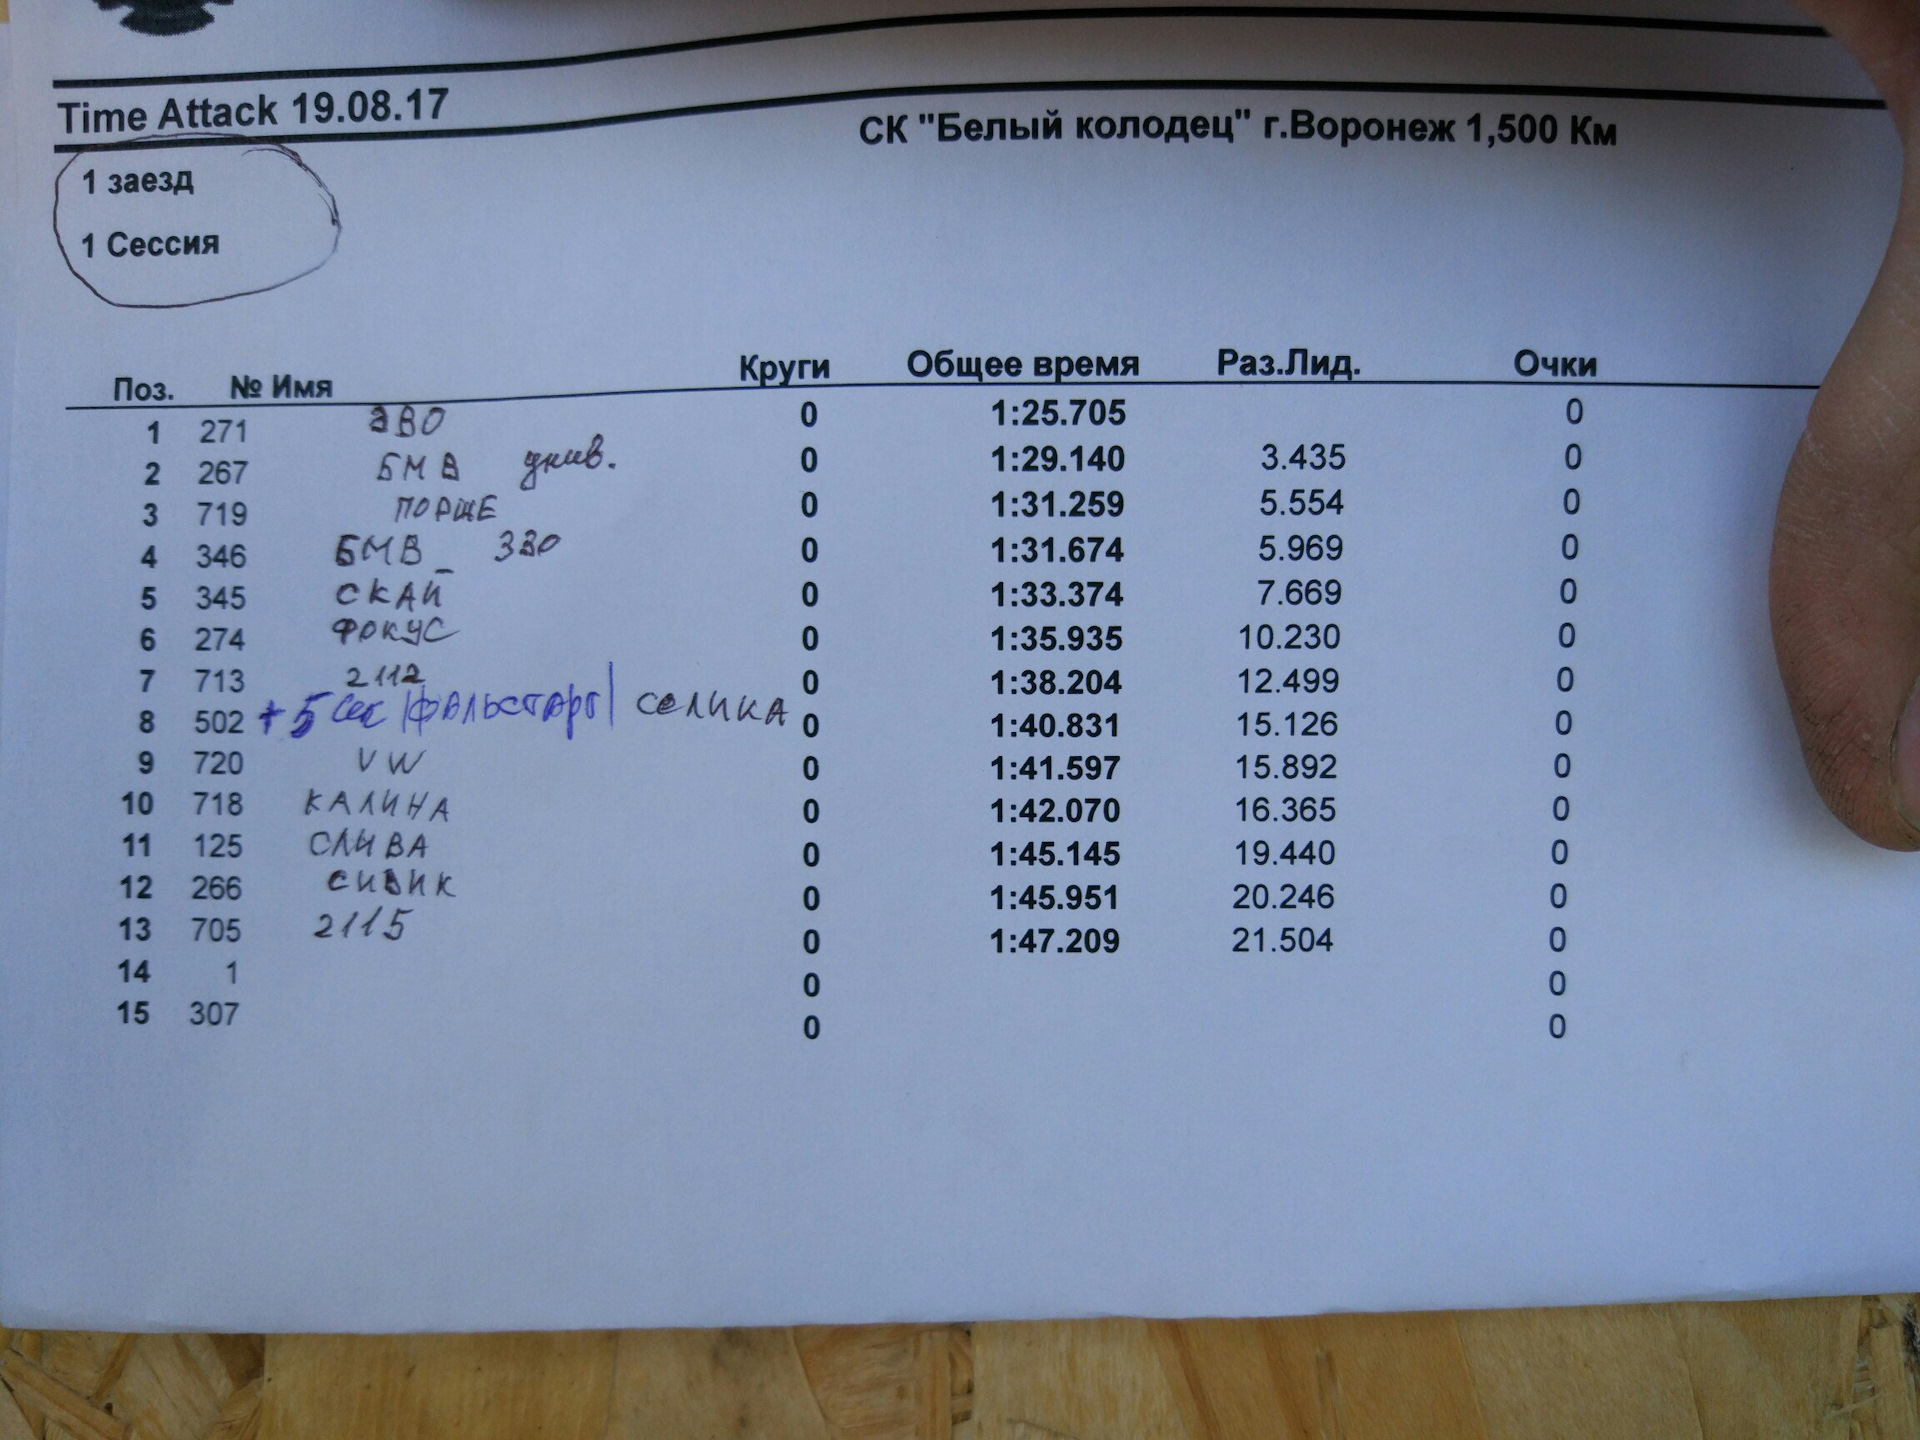 Time Attack 19.08.17
СК "Белый колодец" г.Воронеж 1,500 Км
1 заезд
1 Сессия
Поз. № Имя Круги Общее время Раз.Лид. Очки
1 271 ЭВО 0 1:25.705 0
2 267 БМВ унив. 0 1:29.140 3.435 0
3 719 ПОРШЕ 0 1:31.259 5.554 0
4 346 БМВ_ 330 0 1:31.674 5.969 0
5 345 СКАЙ 0 1:33.374 7.669 0
6 274 ФОКУС 0 1:35.935 10.230 0
7 713 2112 0 1:38.204 12.499 0
8 502 + 5 сек |фальстарт| СЕЛИКА 0 1:40.831 15.126 0
9 720 VW 0 1:41.597 15.892 0
10 718 КАЛИНА 0 1:42.070 16.365 0
11 125 СЛИВА 0 1:45.145 19.440 0
12 266 СИВИК 0 1:45.951 20.246 0
13 705 2115 0 1:47.209 21.504 0
14 1 0 0
15 307 0 0